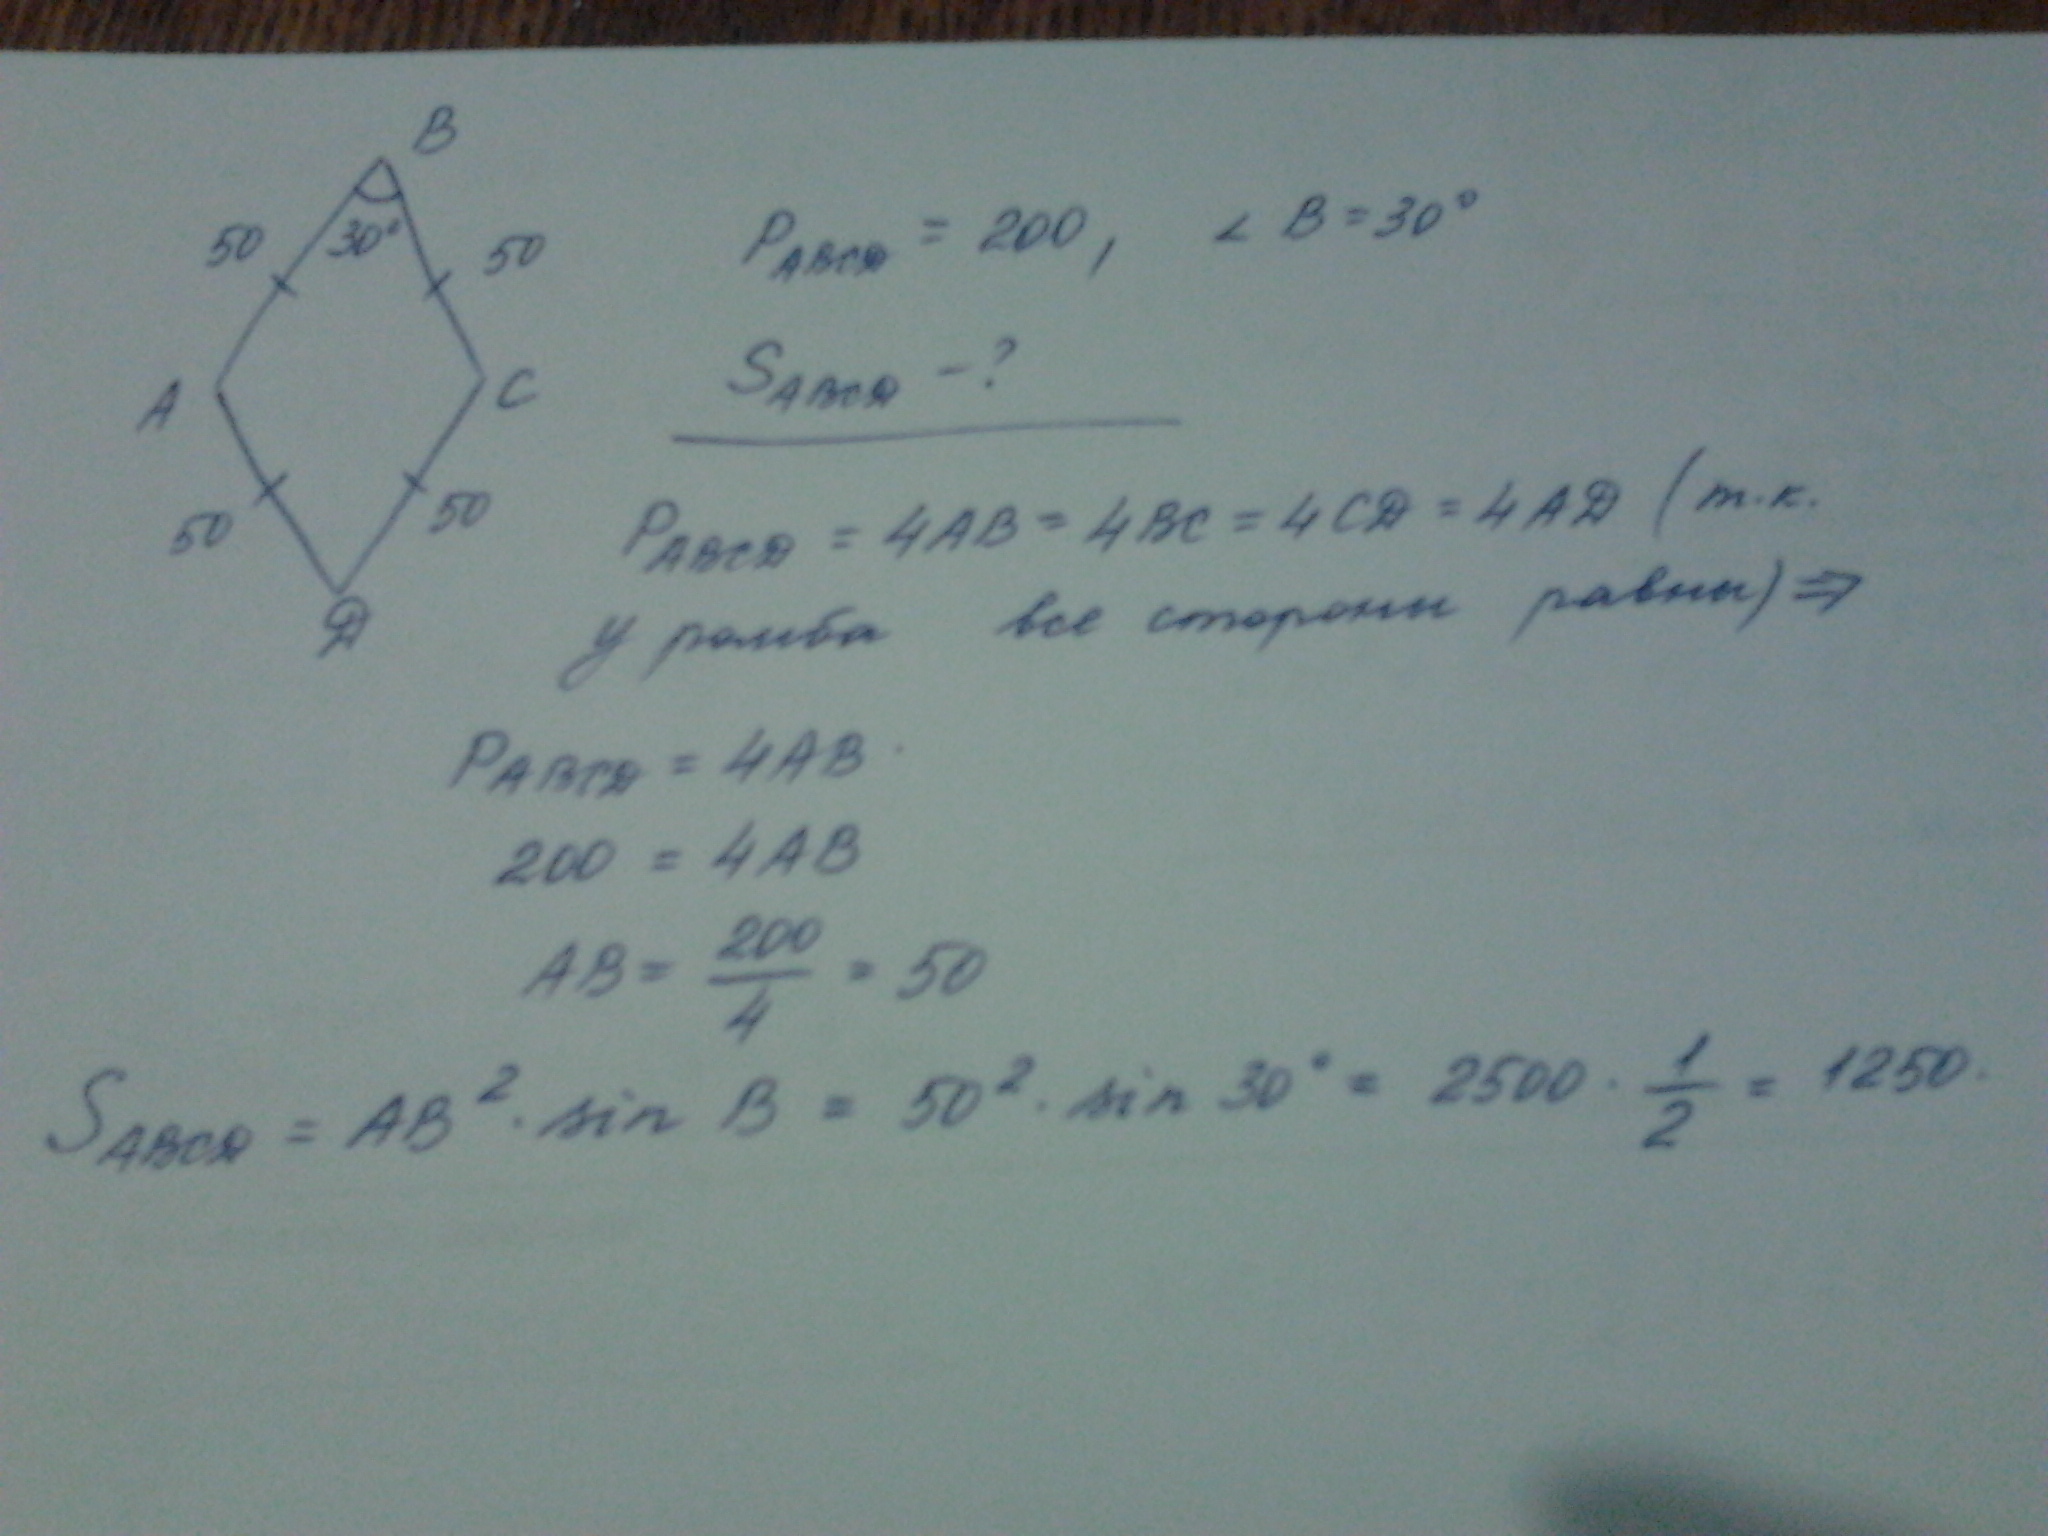 B
50
30°
50
A
C
50
50
D
P_ABCD = 200, ∠ B = 30°
S_ABCD - ?
P_ABCD = 4AB = 4BC = 4CD = 4AD (т.к.
у ромба все стороны равны) ⇒
P_ABCD = 4AB
200 = 4AB
AB = 200/4 = 50
S_ABCD = AB² · sin B = 50² · sin 30° = 2500 · 1/2 = 1250.